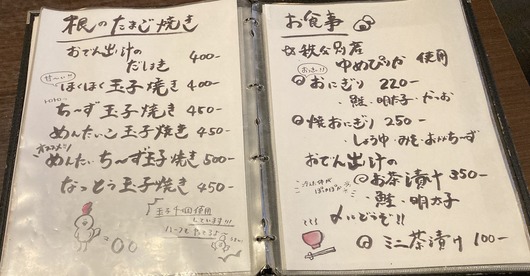 根のたまご焼き
おでん出汁の
だしまき 400-
甘~い!!
ほくほく玉子焼き 400-
ち~ず玉子焼き 450-
めんたいこ玉子焼き 450-
オススメ!
めんたいち~ず玉子焼き 500-
なっとう玉子焼き 450-
玉子4個使用
しています!!!
お食事
ゆめぴりか 使用
@おにぎり 220-
・鮭・明太子・かつお
@焼おにぎり 250-
・しょうゆ・みそ・
おでん出汁の
@お茶漬け 350-
・鮭・明太子
〆にどうぞ!!
@ミニ茶漬け 100-